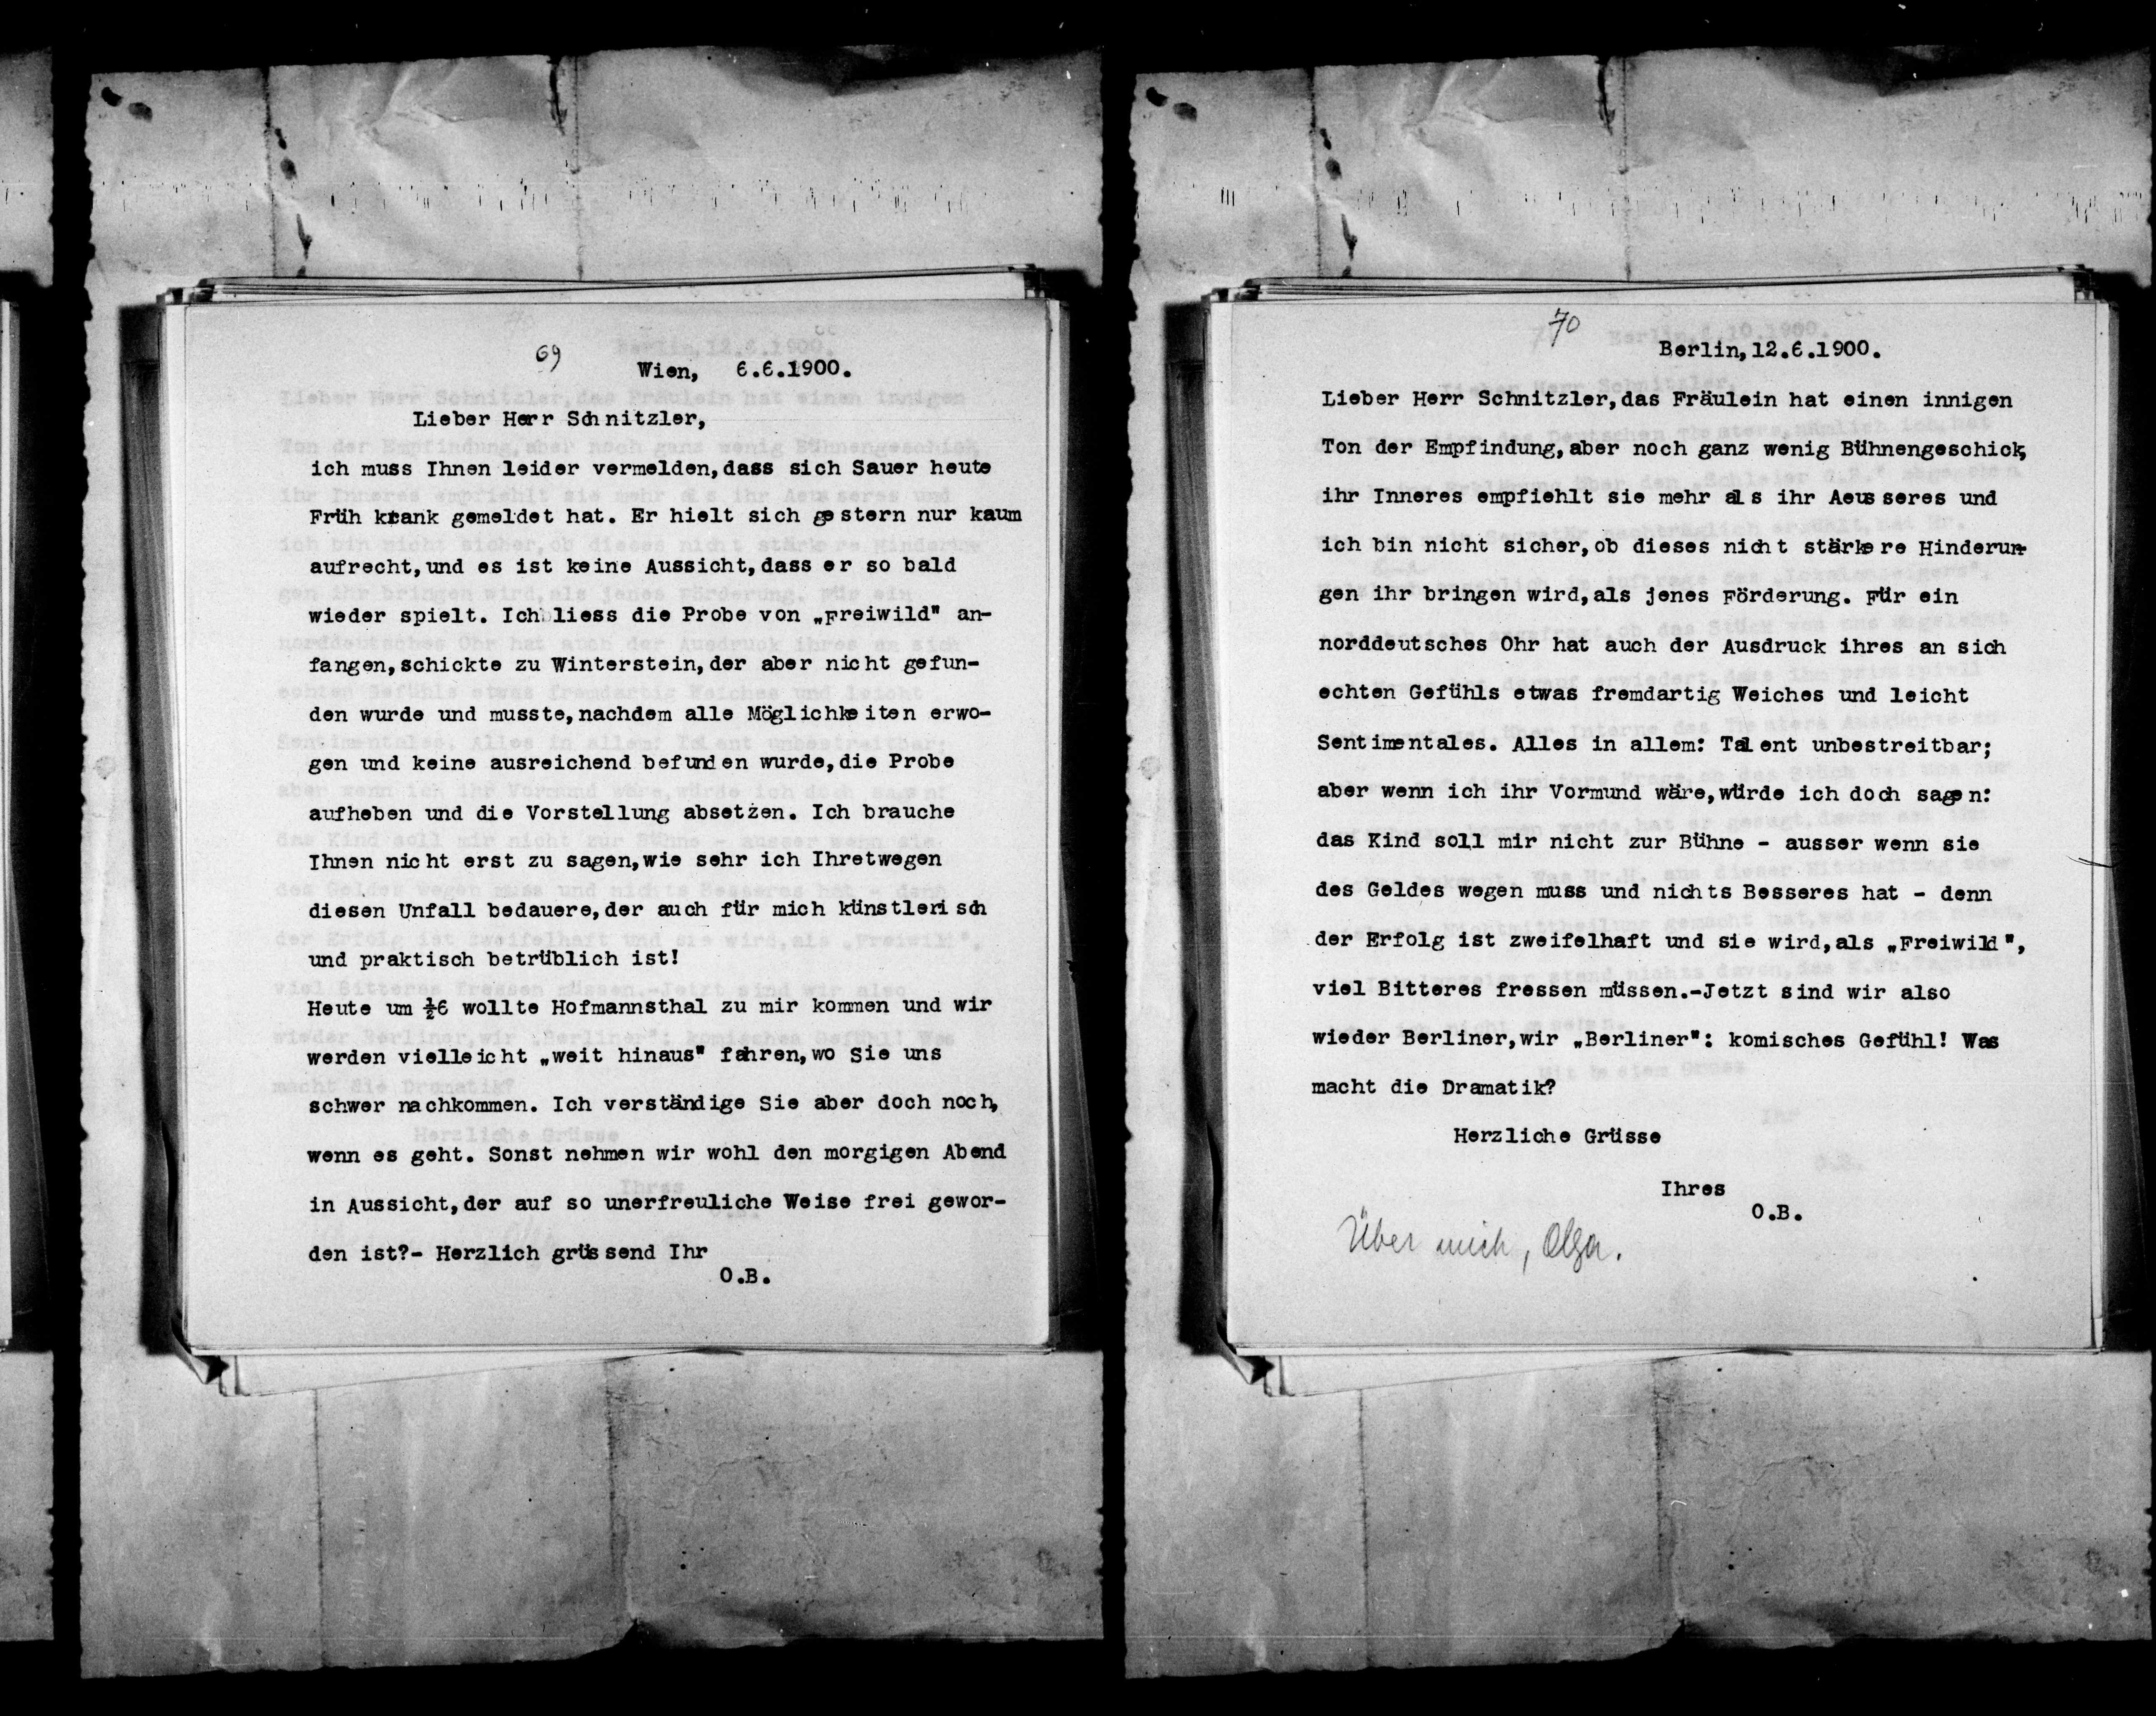 69
Wien, 6.6.1900.
Lieber Herr Schnitzler,
ich muss Ihnen leider vermelden, dass sich Sauer heute
Früh krank gemeldet hat. Er hielt sich gestern nur kaum
aufrecht, und es ist keine Aussicht, dass er so bald
wieder spielt. Ich liess die Probe von „Freiwild" an-
fangen, schickte zu Winterstein, der aber nicht gefun-
den wurde und musste, nachdem alle Möglichkeiten erwo-
gen und keine ausreichend befunden wurde, die Probe
aufheben und die Vorstellung absetzen. Ich brauche
Ihnen nicht erst zu sagen, wie sehr ich Ihretwegen
diesen Unfall bedauere, der auch für mich künstlerisch
und praktisch betrüblich ist!
Heute um ½6 wollte Hofmannsthal zu mir kommen und wir
werden vielleicht „weit hinaus" fahren, wo Sie uns
schwer nachkommen. Ich verständige Sie aber doch noch,
wenn es geht. Sonst nehmen wir wohl den morgigen Abend
in Aussicht, der auf so unerfreuliche Weise frei gewor-
den ist?- Herzlich grüssend Ihr
O.B.
70
Berlin, 12.6.1900.
Lieber Herr Schnitzler, das Fräulein hat einen innigen
Ton der Empfindung, aber noch ganz wenig Bühnengeschick,
ihr Inneres empfiehlt sie mehr als ihr Aeusseres und
ich bin nicht sicher, ob dieses nicht stärkere Hinderun-
gen ihr bringen wird, als jenes Förderung. Für ein
norddeutsches Ohr hat auch der Ausdruck ihres an sich
echten Gefühls etwas fremdartig Weiches und leicht
Sentimentales. Alles in allem: Talent unbestreitbar;
aber wenn ich ihr Vormund wäre, würde ich doch sagen:
das Kind soll mir nicht zur Bühne - ausser wenn sie
des Geldes wegen muss und nichts Besseres hat - denn
der Erfolg ist zweifelhaft und sie wird, als „Freiwild",
viel Bitteres fressen müssen.-Jetzt sind wir also
wieder Berliner, wir „Berliner": komisches Gefühl! Was
macht die Dramatik?
Herzliche Grüsse
Ihres
O.B.
Über mich, Olga.